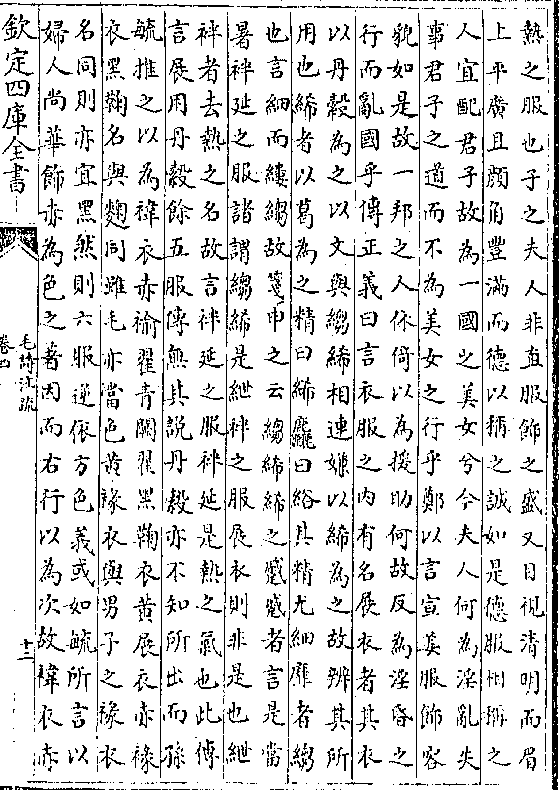 熱之服也子之夫人非直服飾之盛又目視清明而眉
上平廣且顔角豐滿而德以稱之誠如是德服相稱之
人宜配君子故為一國之美女兮今夫人何為淫亂失
事君子之道而不為美女之行乎鄭以言宣姜服飾容
貌如是故一邦之人依倚以為援助何故反為淫昏之
行而亂國乎傳正義曰言衣服之内有名展衣者其衣
以丹縠為之以文與縐絺相連嫌以絺為之故辨其所
用也絺者以葛為之精曰絺麤曰綌其精尤細靡者縐
也言細而縷縐故箋申之云縐絺絺之蹙蹙者言是當
暑袢延之服諸謂縐絺是紲袢之服展衣則非是也紲
袢者去熱之名故言袢延之服袢延是熱之氣也此傳
言展用丹縠餘五服傳無其說丹縠亦不知所出而孫
毓推之以為褘衣赤褕翟青闕翟黑鞠衣黄展衣赤褖
衣黑鞠名與麴同雖毛亦當色黄褖衣與男子之褖衣
名同則亦宜黑然則六服逆依方色義或如毓所言以
婦人尚華飾赤為色之著因而右行以為次故褘衣赤
欽定四庫全書
毛詩注疏
卷四
十二